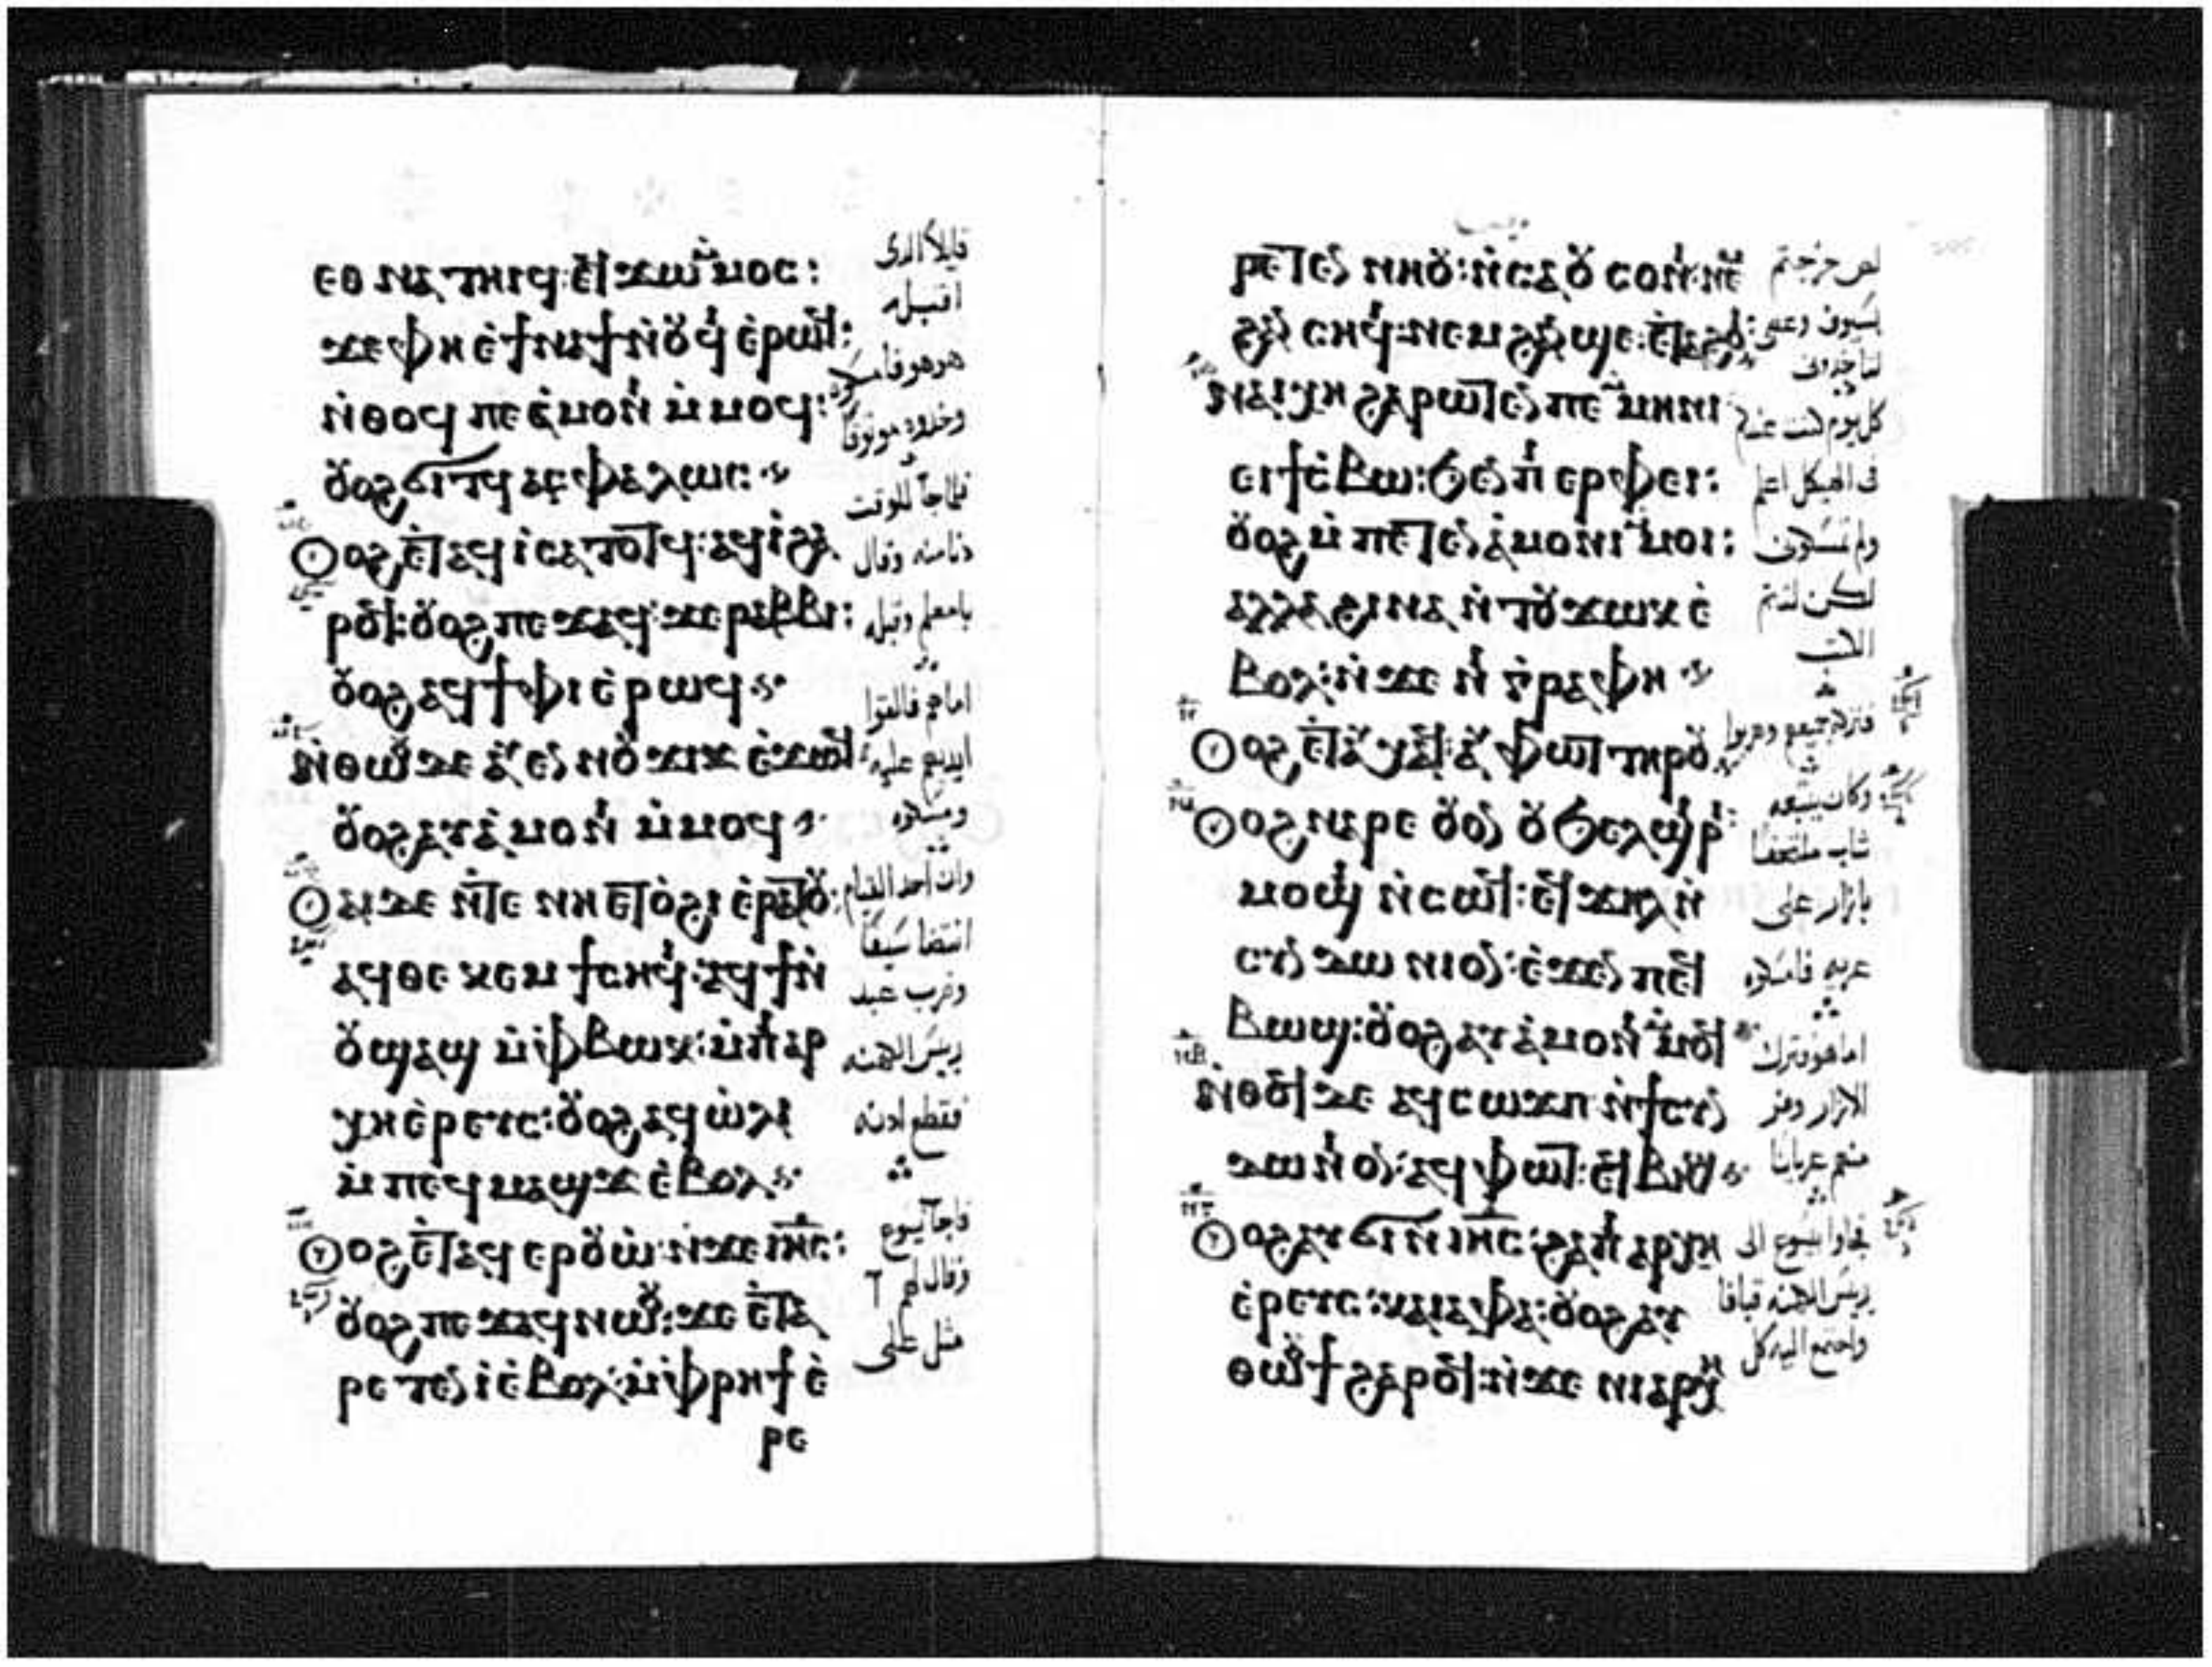 ⲉⲑⲛⲁⲧⲏⲓϥ:ⲉϥϫⲱ ⲙ̀ⲙⲟⲥ:
ϫⲉ ⲫⲏ ⲉ̀ϯⲛⲁϯ ⲛ̀ⲟⲩⲫⲓ ⲉ̀ⲣⲱϥ:
ⲛ̀ⲑⲟϥ ⲡⲉ ⲁ̀ⲙⲟⲛⲓ ⲙ̀ⲙⲟϥ:
ⲟⲩⲟϩ ϭⲓⲧϥ ⲁⲥⲫⲁⲗⲱⲥ
ⲟⲩⲟϩ ⲉ̀ⲧⲁϥⲓ̀ ⲥⲁⲧⲟⲧϥ:ⲁϥⲓ̀ ϩⲁ
ⲣⲟϥ:ⲟⲩⲟϩ ⲡⲉϫⲁϥ:ϫⲉ ⲣⲁⲃⲃⲓ:
ⲟⲩⲟϩ ⲁϥϯⲫⲓ ⲉ̀ⲣⲱϥ
ⲛ̀ⲑⲱⲟⲩ ⲇⲉ ⲁⲩⲉⲛ ⲛⲟⲩϫⲓϫ ⲉ̀ϫⲱϥ:
ⲟⲩⲟϩ ⲁⲩⲁ̀ⲙⲟⲛⲓ ⲙ̀ⲙⲟϥ
ⲟⲩⲁⲓ ⲇⲉ ⲛ̀ⲧⲉ ⲛⲏ ⲉⲧⲟ̀ϩⲓ ⲉ̀ⲣⲁⲧⲟⲩ:
ⲁϥⲑⲉⲕⲉⲙ ϯⲥⲏϥⲓ:ⲁϥϯ ⲛ̀
ⲟⲩϣⲁϣ ⲙ̀ⲫ̀ⲃⲱⲕ:ⲙ̀ⲡⲓⲁⲣ
ⲭⲏⲉ̀ⲣⲉⲩⲥ:ⲟⲩⲟϩ ⲁϥⲱ̀ⲗⲓ
ⲙ̀ⲡⲉϥⲙⲁϣϫ ⲉ̀ⲃⲟⲗ
ⲟⲩⲟϩ ⲉ̀ⲧⲁϥ ⲉⲣⲟⲩⲱ̀:ⲛ̀ϫⲉ ⲓⲏⲥ:
ⲟⲩⲟϩ ⲡⲉϫⲁϥ ⲛⲱⲟⲩ:ϫⲉ ⲉ̀ⲧⲁ
ⲣⲉⲧⲉⲛ ⲓ̀ ⲉ̀ⲃⲟⲗ:ⲙ̀ⲫ̀ⲣⲏϯ ⲉ̀
ⲣⲉ
قايلا الذى
اقبله
هو هو فامسكوه
وخذوه موثوقا
فلما جآ للوقت
دنا منه وقال
يامعلم وقبله
اما هم فالقوا
ايديهم عليه
ومسكوه
وان احد القيام
انتضا سيفا
وضرب عبد
رييس الكهنه
فقطع اذنه
فاجآب يسوع
وقال لهم
مثل على
ⲣⲉⲧⲉⲛ ⲛⲏⲟⲩ:ⲛ̀ⲥⲁ ⲟⲩⲥⲟⲛⲓ:ⲛⲉⲙ
ϩⲁⲛ ⲥⲏϥⲓ:ⲛⲉⲙ ϩⲁⲛϣⲉ:ⲉ̀ⲧⲁϩⲟⲓ:
ⲛⲁⲓⲭⲏ ϩⲁⲣⲱⲧⲉⲛ ⲡⲉ ⲙ̀ⲙⲏⲛⲓ
ⲉⲓϯⲥ̀ⲃⲱ:ϧⲉⲛ ⲡⲓⲉⲣⲫⲉⲓ:
ⲟⲩⲟϩ ⲙ̀ⲡⲉⲧⲉⲛⲁ̀ⲙⲟⲛⲓ ⲙ̀ⲙⲟⲓ:
ⲁⲗⲗⲁ ϩⲓⲛⲁ ⲛ̀ⲧⲟⲩϫⲱⲕ ⲉ̀
ⲃⲟⲗ:ⲛ̀ϫⲉ ⲛⲓⲅ̀ⲣⲁⲫⲏ
ⲟⲩⲟϩ ⲉ̀ⲧⲁⲩⲭⲁϥ:ⲁⲩⲫⲱⲧ ⲧⲏⲣⲟⲩ
ⲟⲩⲟϩ ⲛⲁⲣⲉ ⲟⲩⲟⲛ ⲟⲩϧⲉⲗϣⲓⲣⲓ:
ⲙⲟϣⲓ ⲛ̀ⲥⲱϥ:ⲉϥϫⲏⲗ ⲛ̀
ⲥⲩⲛⲇⲱⲛⲓⲟⲛ:ⲉ̀ϫⲉⲛ ⲡⲉϥ
ⲃⲱϣ:ⲟⲩⲟϩ ⲁⲩⲁ̀ⲙⲟⲛⲓ ⲙ̀ⲙⲟϥ
ⲛ̀ⲑⲟϥ ⲇⲉ ⲁϥⲥⲱϫⲡ ⲛ̀ϯⲥⲩⲛ
ⲇⲱⲛⲓⲟⲛ:ⲁϥⲫⲱⲧ:ⲉϥⲃⲏϣ
ⲟⲩⲟϩ ⲁⲩϭⲓ ⲛ̀ⲓⲏⲥ:ϩⲁ ⲡⲓⲁⲣⲭⲏ
ⲉ̀ⲣⲉⲩⲥ:ⲕⲁⲓⲁⲫⲁ:ⲟⲩⲟϩ ⲁⲩ
ⲑⲱⲟⲩϯ ϩⲁⲣⲟϥ:ⲛ̀ϫⲉ ⲛⲓⲁⲣⲭⲏ
لص خرجتم
بسيوف وعصى
لتاخذونى
كل يوم كنت عندكم
فى الهيكل اعلم
ولم تمسكونى
لكن لتتم
الكتب
فتركه جميعهم وهربوا
وكان يتبعه
شاب ملتحفا
بازار على
عريه فامسكوه
اما هو فترك
الازار وفر
منهم عريانا
فجاوا بيسوع الى
رييس الكهنه قيافا
واجتمع اليه كل